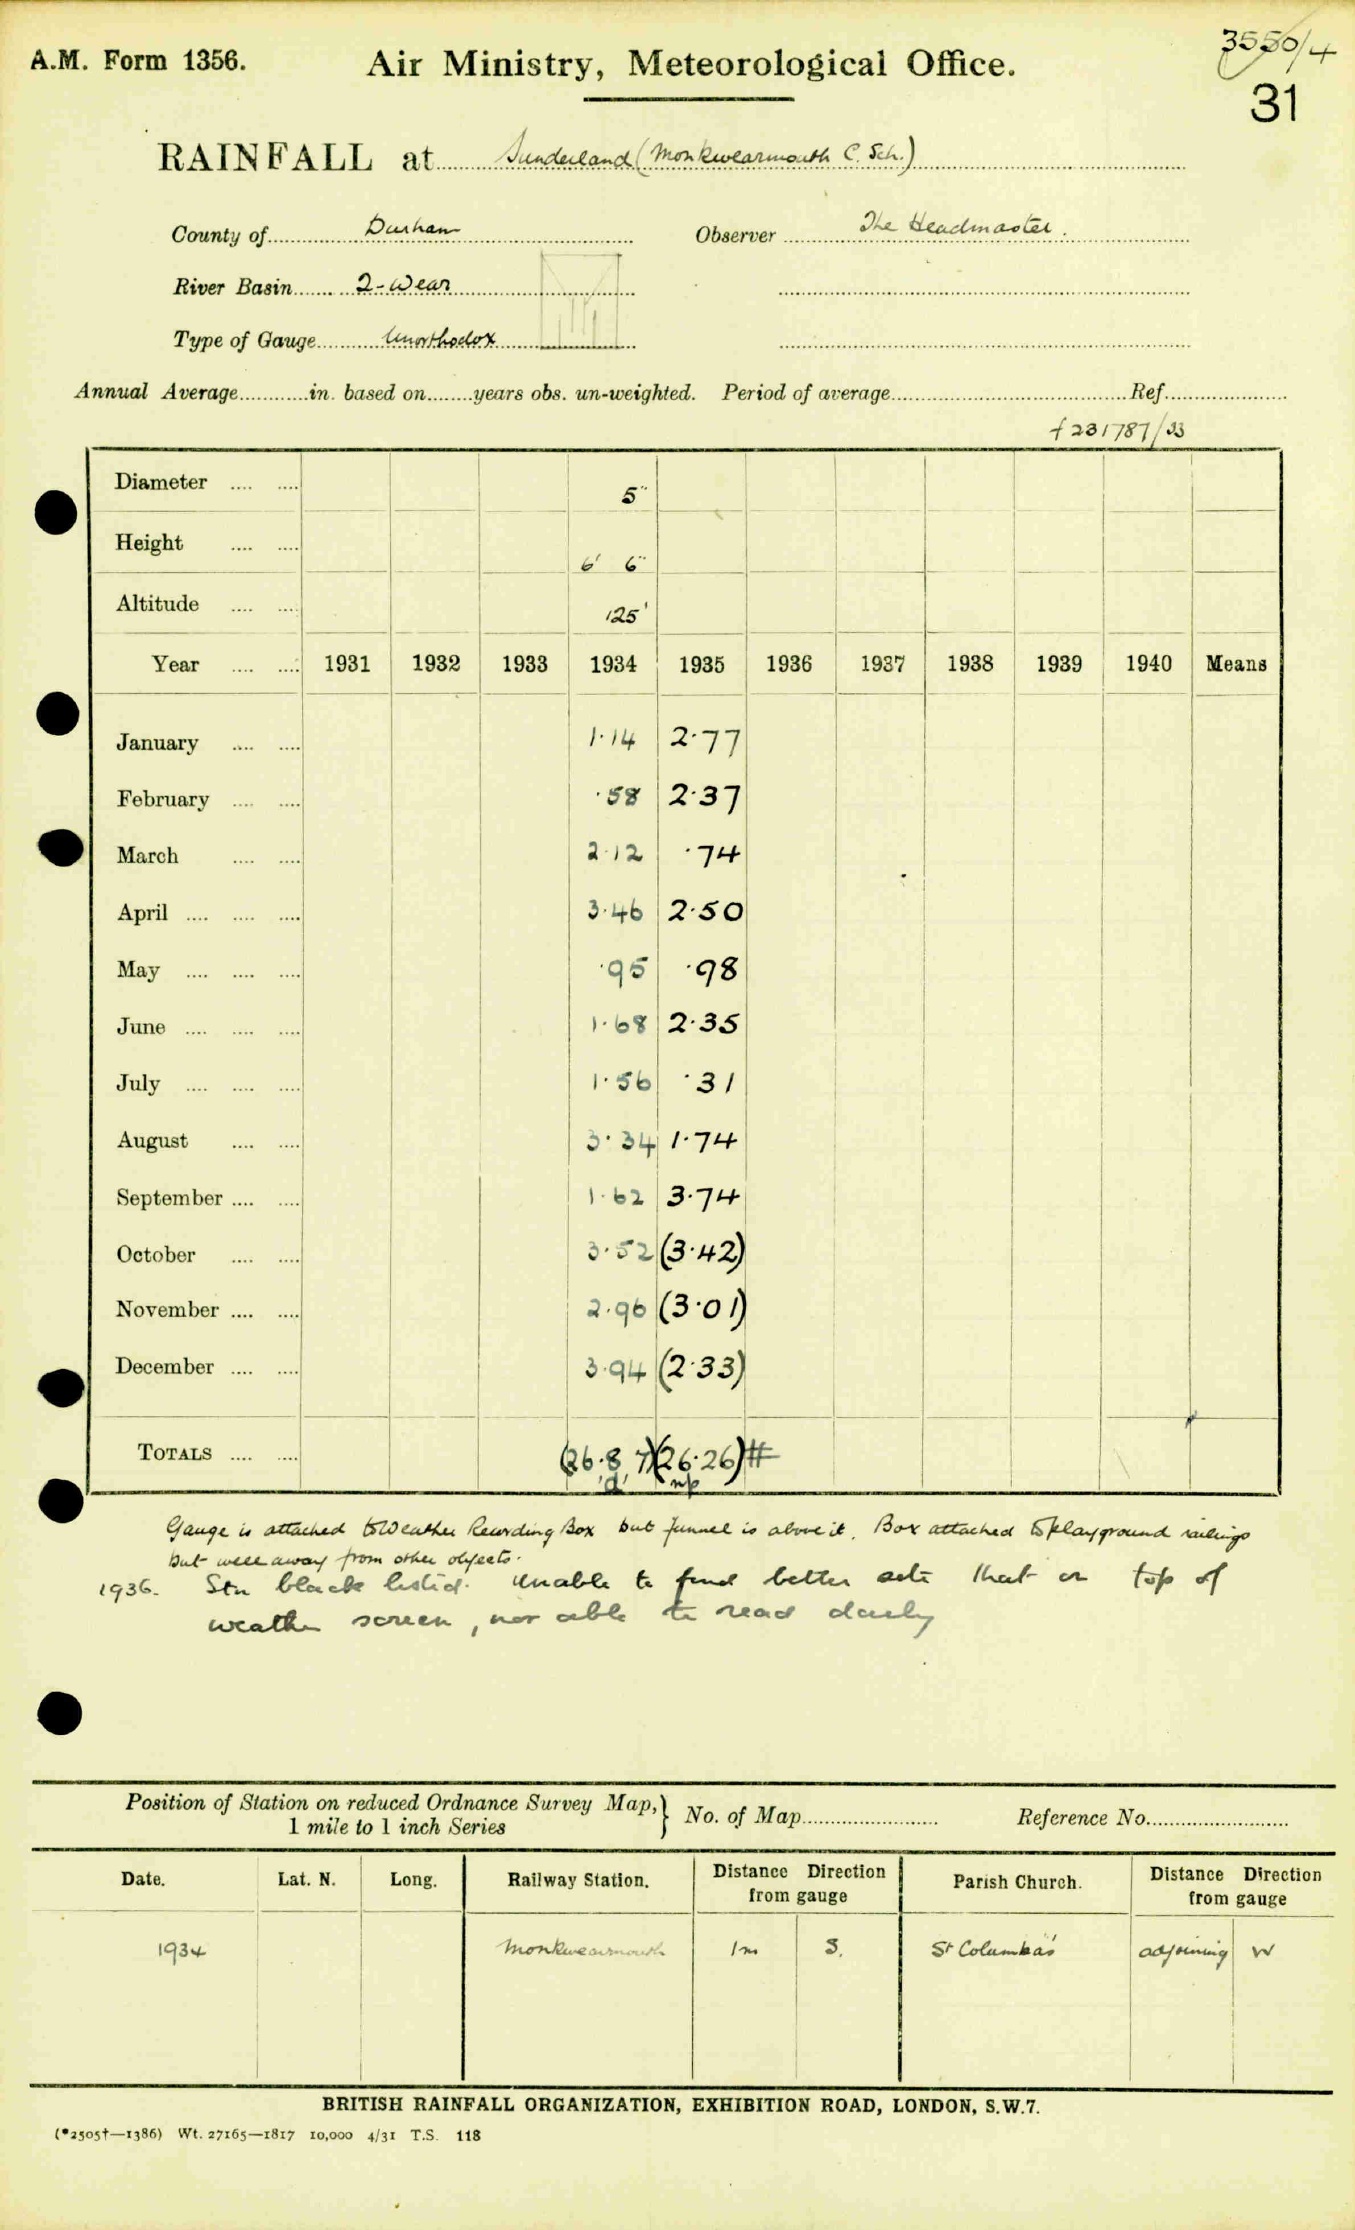 A.M. Form 1356.
Air Ministry, Meteorological Office.
3550/4
31
RAINFALL at Sunderland (Monkwearmouth C. Sch.)
County of Durham Observer The Headmaster.
River Basin 2 - Wear
Type of Gauge Unorthodox
Annual Average in. based on years obs. un-weighted. Period of average Ref.
f 231787/33
Diameter 5"
Height 6' 6"
Altitude 125'
Year 1931 1932 1933 1934 1935 1936 1937 1938 1939 1940 Means
January 1·14 2·77
February ·58 2·37
March 2·12 ·74
April 3·46 2·50
May ·95 ·98
June 1·68 2·35
July 1·56 ·31
August 3·34 1·74
September 1·62 3·74
October 3·52 (3·42)
November 2·96 (3·01)
December 3·94 (2·33)
TOTALS (26·87) (26·26) #
'd' np
Gauge is attached to Weather Recording Box but funnel is above it. Box attached to playground railings
but well away from other objects.
1936. Stn black listed. Unable to find better site that on top of
weather screen, nor able to read daily
Position of Station on reduced Ordnance Survey Map,} No. of Map Reference No.
1 mile to 1 inch Series
Date. Lat. N. Long. Railway Station. Distance Direction from gauge Parish Church. Distance Direction from gauge
1934 Monkwearmouth 1m S. St Columba's adjoining W
BRITISH RAINFALL ORGANIZATION, EXHIBITION ROAD, LONDON, S.W.7.
(*2505†—1386) Wt. 27165—1817 10,000 4/31 T.S. 118